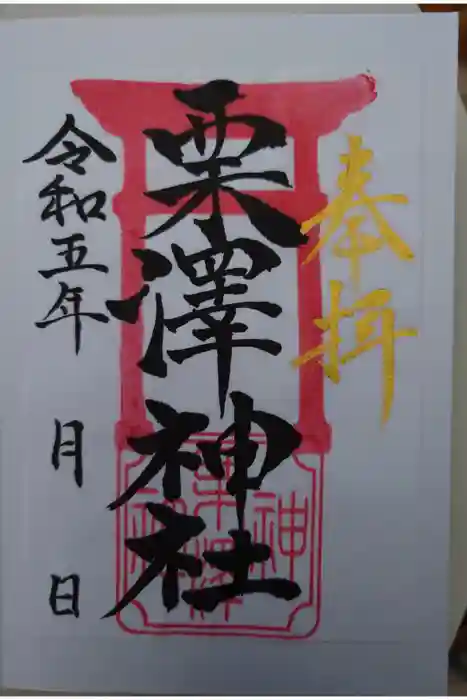 奉拝
栗澤神社
令和五年 月 日
神
栗澤
社